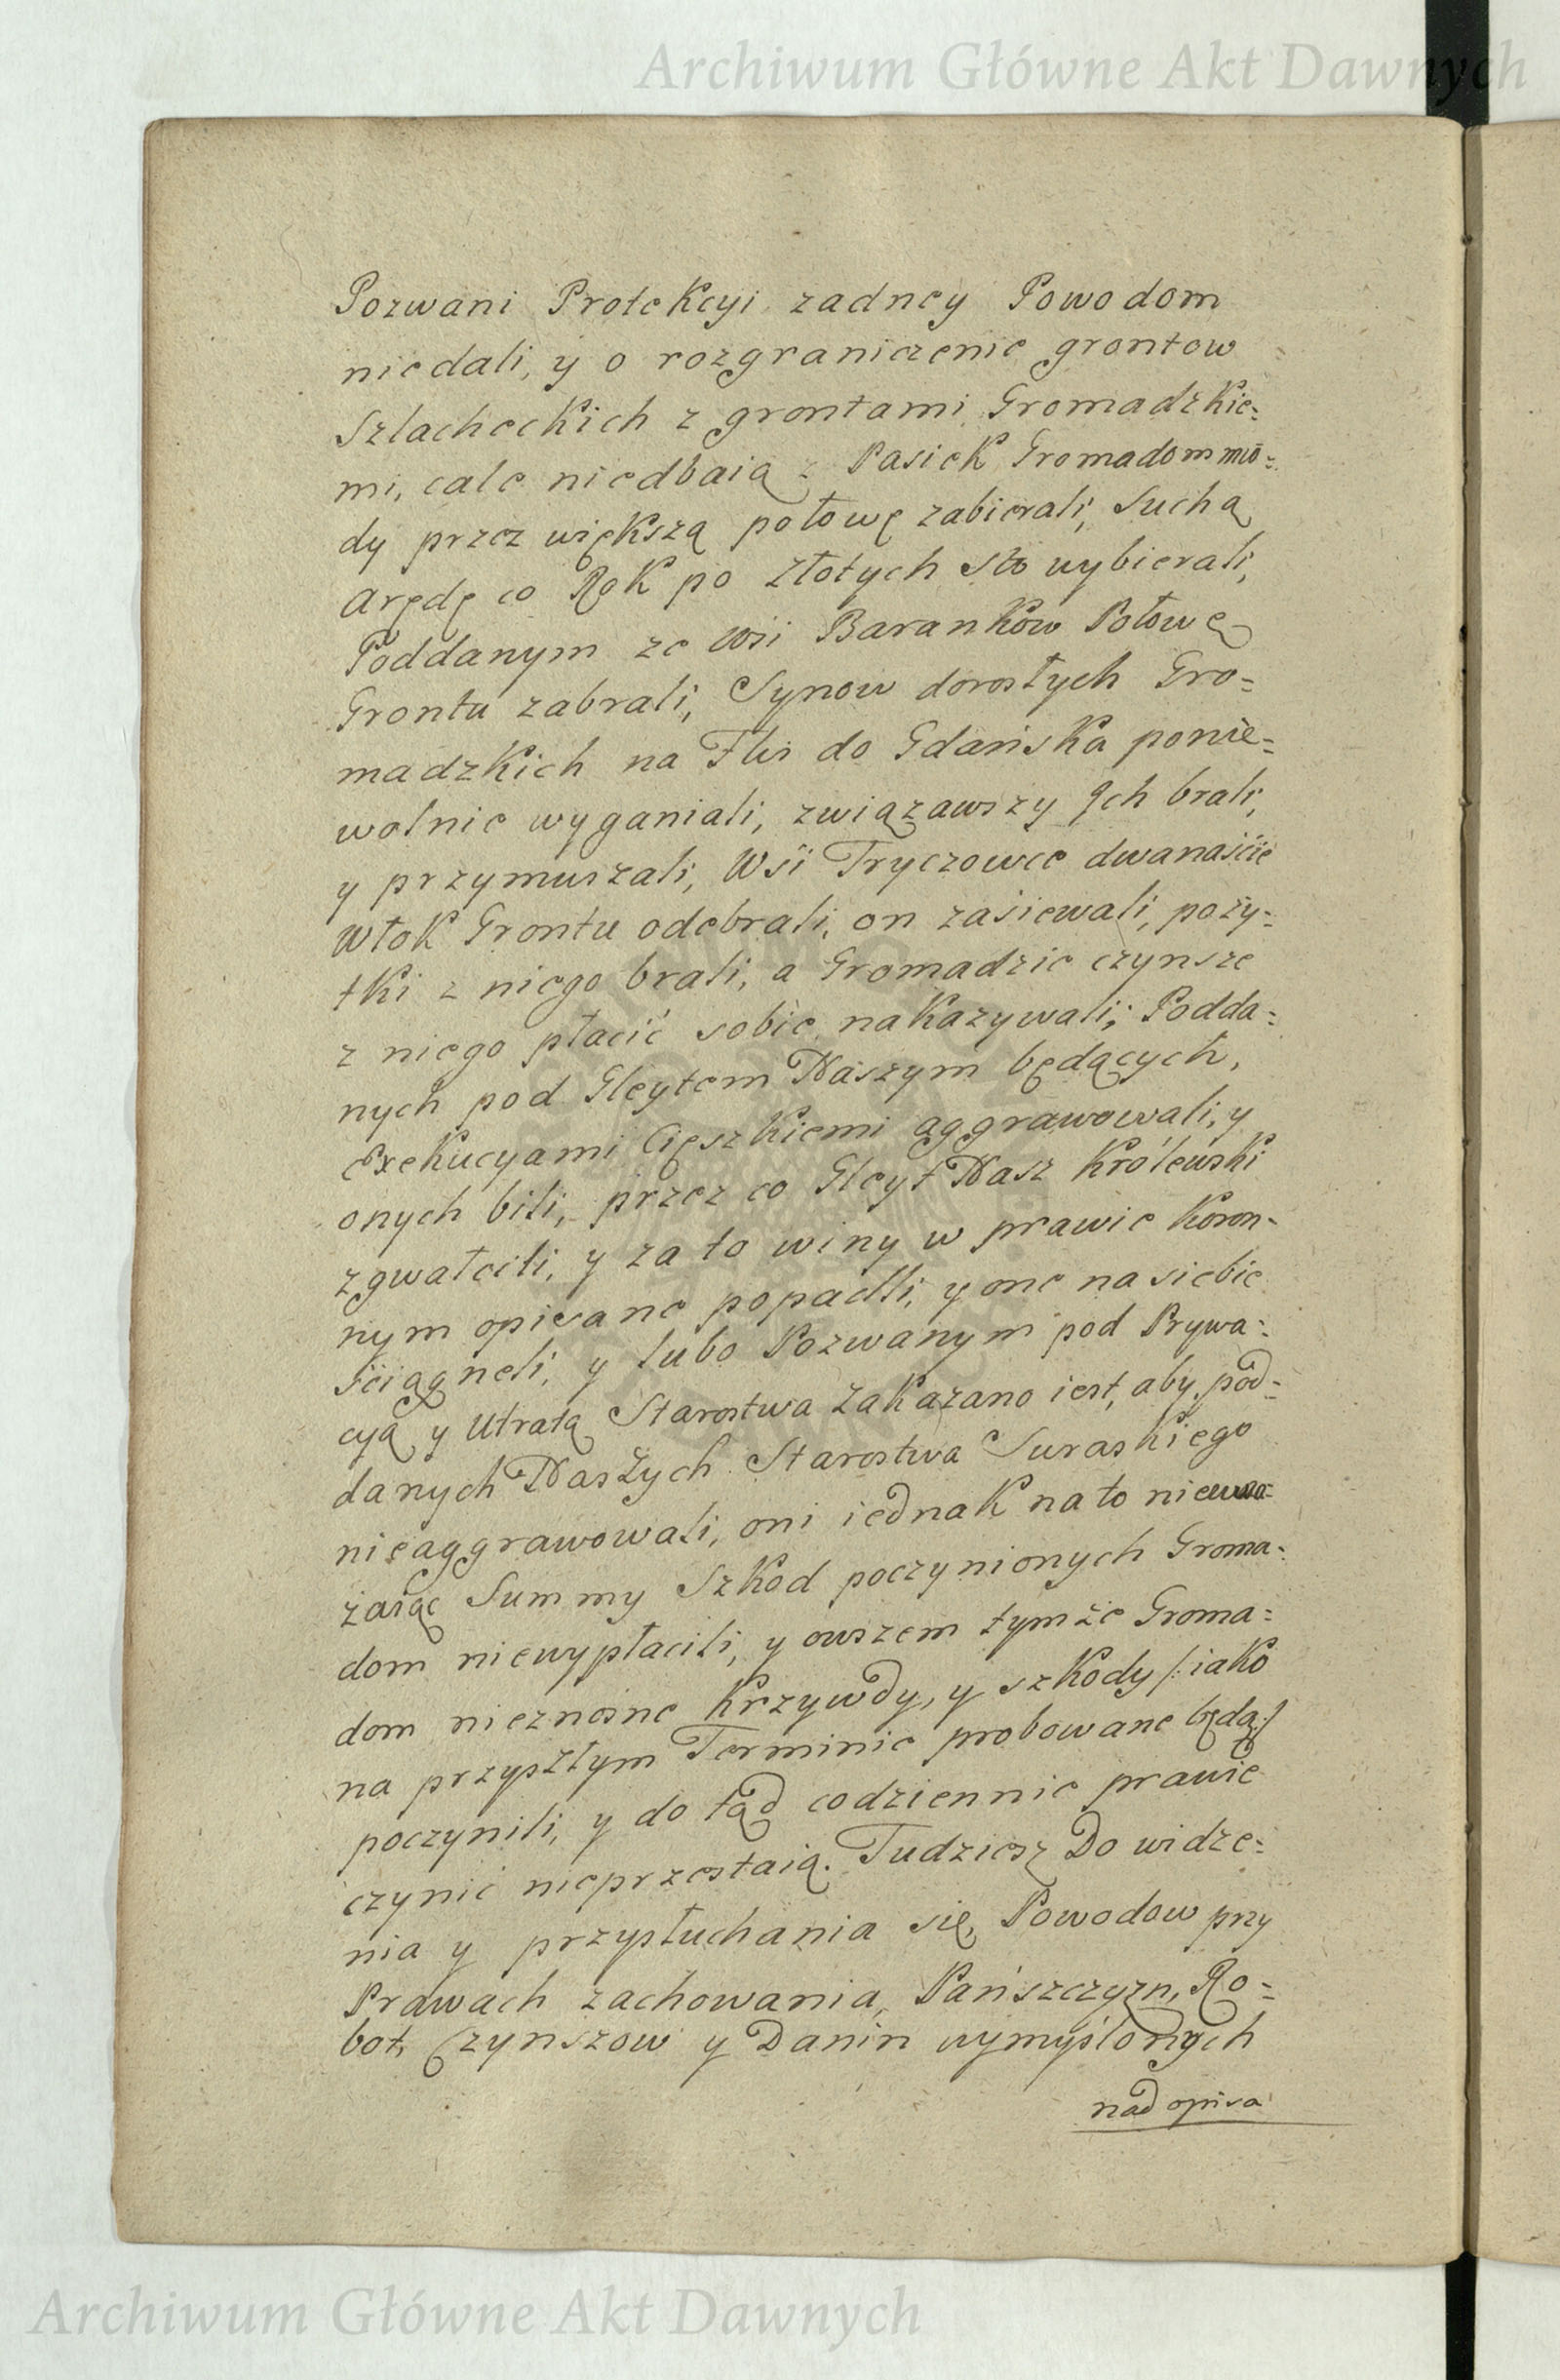 Archiwum Główne Akt Dawnych
Pozwani Protekcyi zadney Powodom
niedali, y o rozgraniczenie grontow
Szlacheckich z grontami Gromadzkie=
mi, cale niedbaią z Pasiek Gromadom mio=
dy przez większą połowę zabierali, Suchą
arędę co Rok po Złotych sto wybierali,
Poddanym ze Wsi Baranków Połowę
Grontu zabrali, Synow dorosłych Gro=
madzkich na Flis do Gdańska ponie=
wolnie wyganiali, związawszy Ich brali,
y przymuszali, Wsi Tryczowce dwanaście
Włok Grontu odebrali, on zasiewali, poży=
tki z niego brali, a Gromadzie czynsze
z niego płacić sobie nakazywali; Podda=
nych pod Gleytem Naszym będących,
Exekucyami Cięszkiemi aggrawowali, y
onych bili, przez co Gleyt Nasz Królewski
zgwałcili, y za to winy w prawie Koron=
nym opisane popadli, y one na siebie
ściągneli, y lubo Pozwanym pod Prywa=
cyą y Utratą Starostwa Zakazano iest, aby pod=
danych Naszych Starostwa Suraskiego
nieaggrawowali, oni iednak na to niewa=
żaiąc Summy Szkod poczynionych Groma=
dom niewypłacili, y owszem tymże Groma=
dom nieznosne Krzywdy, y szkody /: iako
na przyszłym Terminie probowane będą :/
poczynili, y do tąd codziennie prawie
czynić nieprzestaią. Tudziesz Do widze=
nia y przysłuchania się, Powodow przy
Prawach zachowania, Pańszczyzn, Ro=
bot, Czynszow y Danin wymyślonych
nad opisa
Archiwum Główne Akt Dawnych